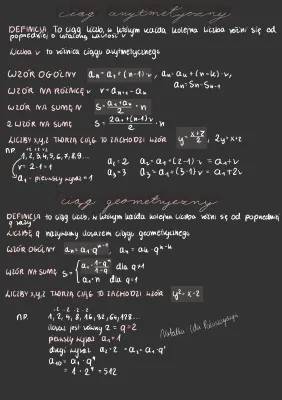 ciąg arytmetyczny
DEFINICJA To ciąg liczb, w którym każda kolejna liczba różni się od
poprzedniej o ustaloną wartość r
Liczba r to różnica ciągu arytmetycznego
WZÓR OGÓLNY an=a1+(n-1)r, an=ak+(n-k)r,
WZÓR NA RÓŻNICĘ r=an+1-an an=Sn-Sn-1
WZÓR NA SUMĘ S=a1+an/2·n
2 WZÓR NA SUMĘ S=2a1+(n-1)r/2·n
LICZBY x,y,z TWORZĄ CIĄG TO ZACHODZI WZÓR y=x+z/2, 2y=x+z
np.
1,2,3,4,5,6,7,8,9... a1=2 a2=a1+(2-1)r=a1+r
r=2-1=1 a2=3 a3=a1+(3-1)r=a1+2r
a1-pierwszy wyraz=1
ciąg geometryczny
DEFINICJA to ciąg liczb, w którym każda kolejna liczba różni się od poprzedniej
q razy
LICZBĘ q nazywamy ilorazem ciągu geometrycznego
WZÓR OGÓLNY an=a1·qn-1, an=ak·qn-k
WZÓR NA SUMĘ S={a1·1-qn/1-q dla q≠1
a1·n dla q=1
LICZBY x,y,z TWORZĄ CIĄG TO ZACHODZI WZÓR y²=x·z
np. ·2 ·2 ·2 ·2
1, 2, 4, 8, 16, 32, 64, 128...
iloraz jest równy 2=q=2
pierwszy wyraz a1=1
drugi wyraz a2=2=a2=a1·q1
a10=a1·q9
1·2⁹=512
Notatka